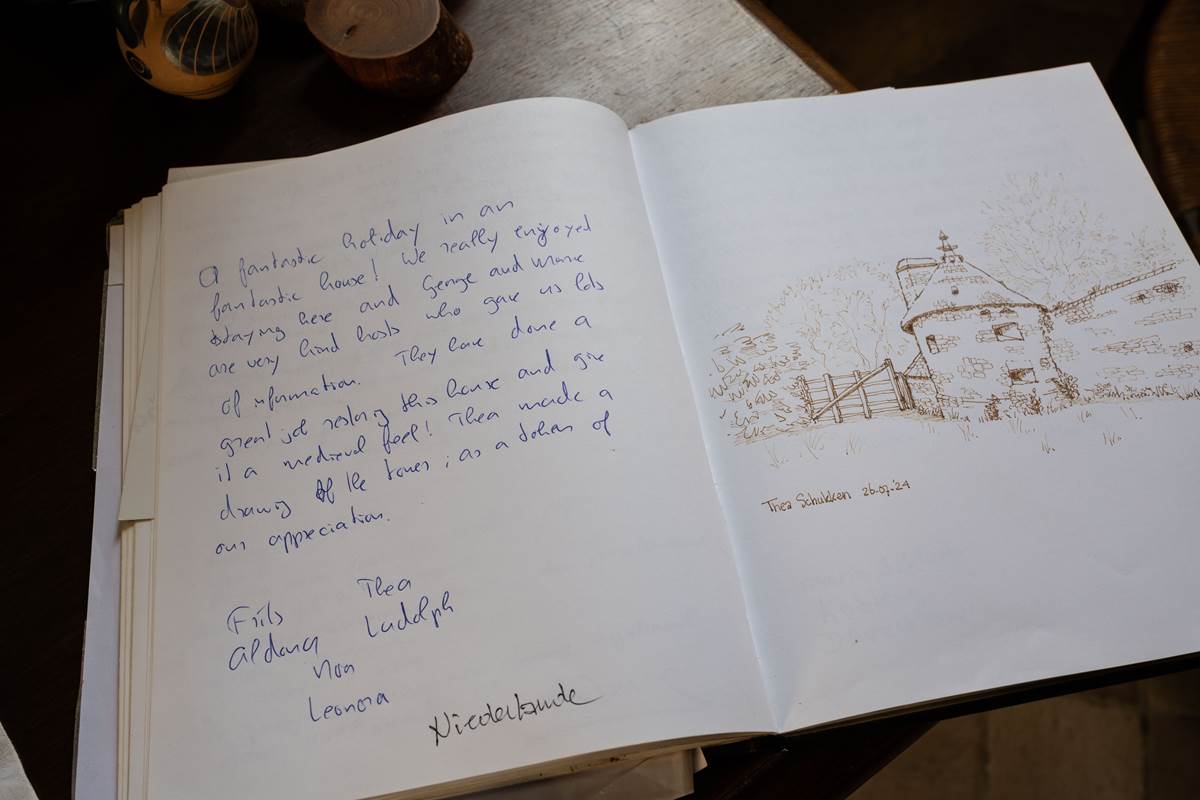 A fantastic holiday in an
fantastic house! We really enjoyed
staying here and George and Marie
are very kind hosts who gave us lots
of information. They have done a
great job restoring this house and give
it a medieval feel! Thea made a
drawing of the tower, as a token of
our appreciation.
Frits Thea
Aldona Ludolph
Noa
Leonora
Niederlande
Thea Schukken 26-07-'24